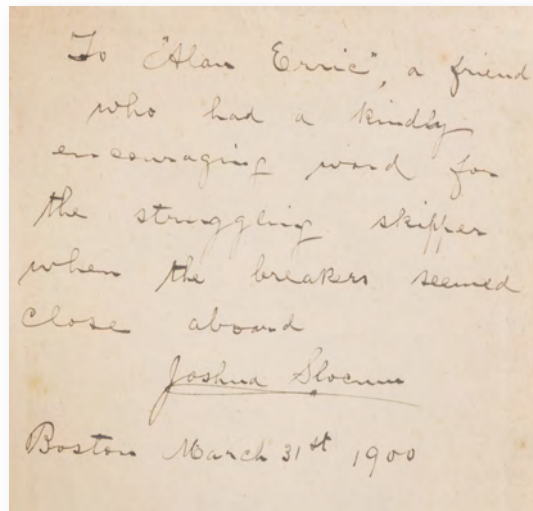 To "Alan Erric", a friend
who had a kindly
encouraging word for
the struggling skipper
when the breakers seemed
close aboard
Joshua Slocum
Boston March 31st 1900